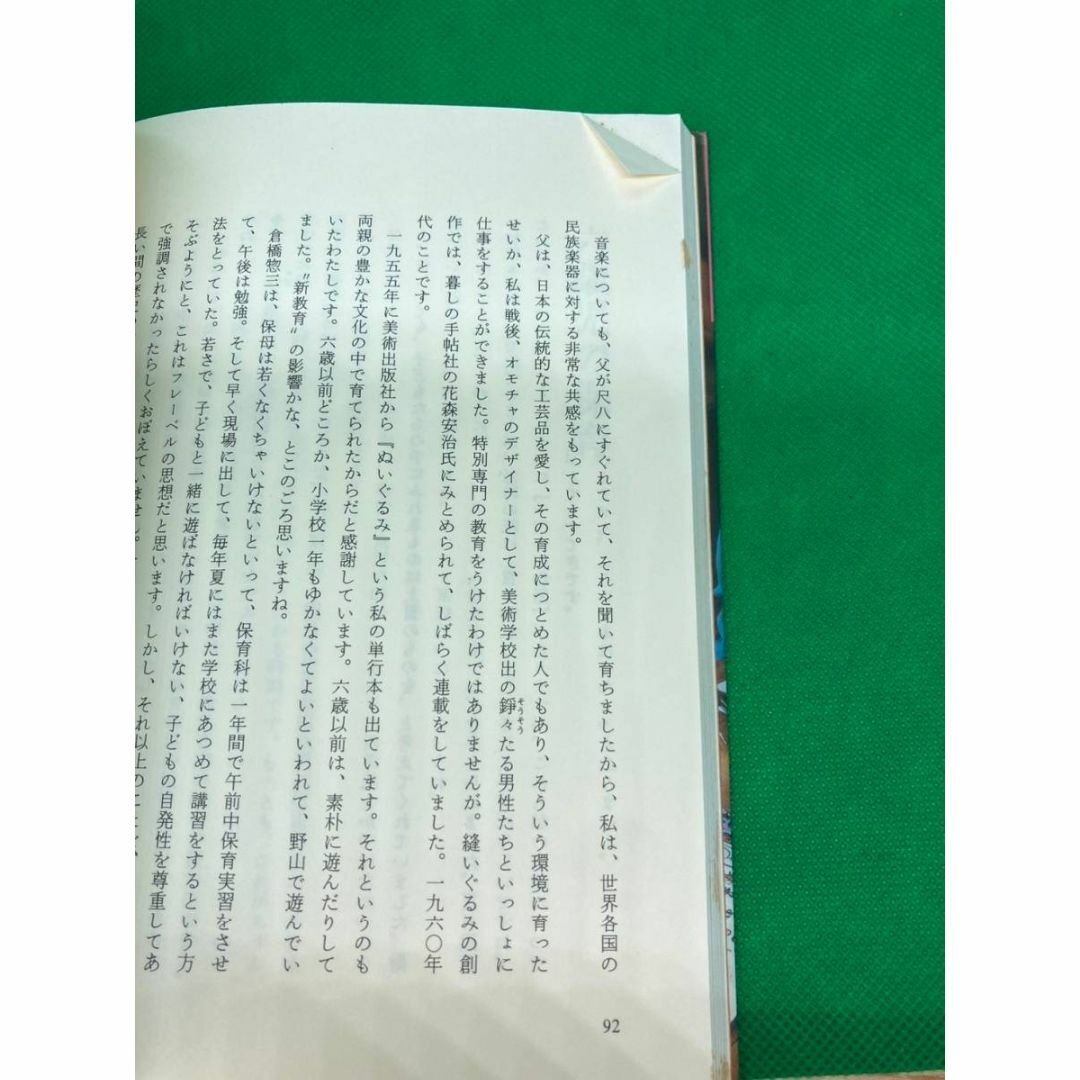 音楽についても、父が尺八にすぐれていて、それを聞いて育ちましたから、私は、世界各国の
民族楽器に対する非常な共感をもっています。
父は、日本の伝統的な工芸品を愛し、その育成につとめた人でもあり、そういう環境に育った
せいか、私は戦後、オモチャのデザイナーとして、美術学校出の錚々たる男性たちといっしょに
そうそう
仕事をすることができました。特別専門の教育をうけたわけではありませんが。縫いぐるみの創
作では、暮しの手帖社の花森安治氏にみとめられて、しばらく連載をしていました。一九六〇年
代のことです。
一九五五年に美術出版社から『ぬいぐるみ』という私の単行本も出ています。それというのも
両親の豊かな文化の中で育てられたからだと感謝しています。六歳以前は、素朴に遊んだりして
いたわたしです。六歳以前どころか、小学校一年もゆかなくてよいといわれて、野山で遊んでい
ました。〝新教育〟の影響かな、とこのごろ思いますね。
倉橋惣三は、保母は若くなくちゃいけないといって、保育科は一年間で午前中保育実習をさせ
て、午後は勉強。そして早く現場に出して、毎年夏にはまた学校にあつめて講習をするという方
法をとっていた。若さで、子どもと一緒に遊ばなければいけない、子どもの自発性を尊重してあ
そぶようにと、これはフレーベルの思想だと思います。しかし、それ以上のことは、
で強調されなかったらしくおぼえていません。
長い間の
92